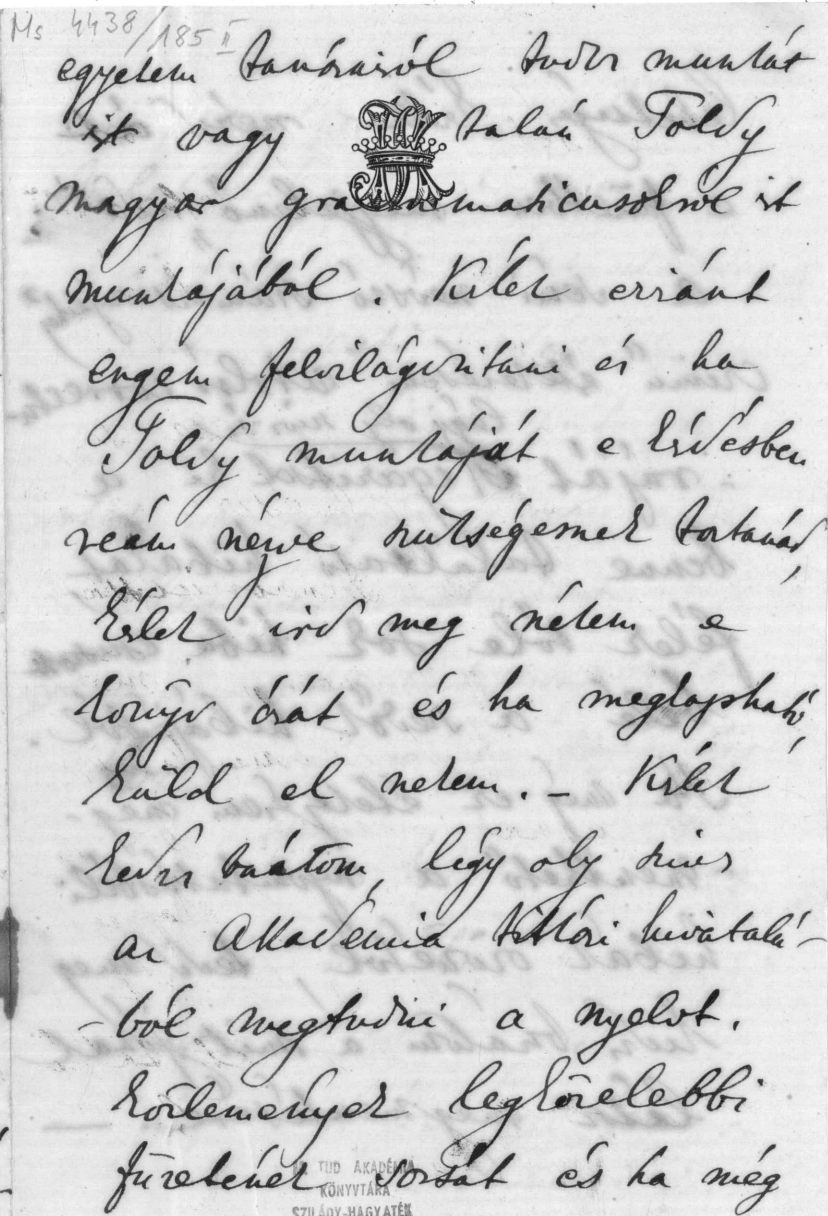 Ms 4438/185 II
egyetem tanárairól tudsz munkát
ist vagy talán Toldy
magyar grammaticusokról ist
munkájából. Kérlek eziránt
engem felvilágositani és ha
Toldy munkáját e kérdésben
reám nézve szükségesnek tartanád,
kérlek ird meg nékem e
könyv árát és ha megkapható,
küld el nekem. – Kérlek
kedves barátom, légy oly szives
az Akadémia titkári hivatalá-
-ból megtudni a nyelvt.
közlemények legközelebbi
füzetének sorsát és ha még
M. TUD AKADÉMIA
KÖNYVTÁRA
SZILÁDY-HAGYATÉK